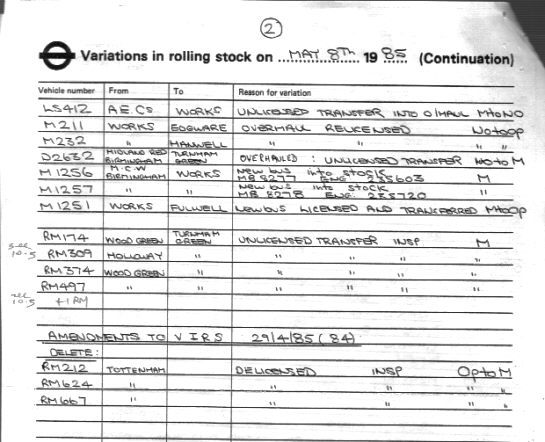 2
Variations in rolling stock on MAY 8TH 1985 (Continuation)
Vehicle number From To Reason for variation
LS412 A.E.Cs WORKS UNLICENSED TRANSFER INTO O/HAUL M to NO
M211 WORKS EDGWARE OVERHAUL RELICENSED NO to OP
M232 " HANWELL " " "
D2632 MIDLAND RED BIRMINGHAM TURNHAM GREEN OVERHAULED : UNLICENSED TRANSFER NO to M
M1256 M.C.W BIRMINGHAM WORKS New bus into STOCK MB 8277 ENG: 235603 M
M1257 " " New bus into STOCK MB 8278 ENG: 235720 "
M1251 WORKS FULWELL NEW BUS LICENSED AND TRANSFERRED M to OP
RM174 WOOD GREEN TURNHAM GREEN UNLICENSED TRANSFER INSP M
see 10.5 RM309 HOLLOWAY " " " " "
RM374 WOOD GREEN " " " " "
RM497 " " " " " "
see 10.5 +1 RM
AMENDMENTS TO V I R S 29/4/85 (84)
DELETE:
RM212 TOTTENHAM DELICENSED INSP OP to M
RM624 " " " "
RM667 " " " "